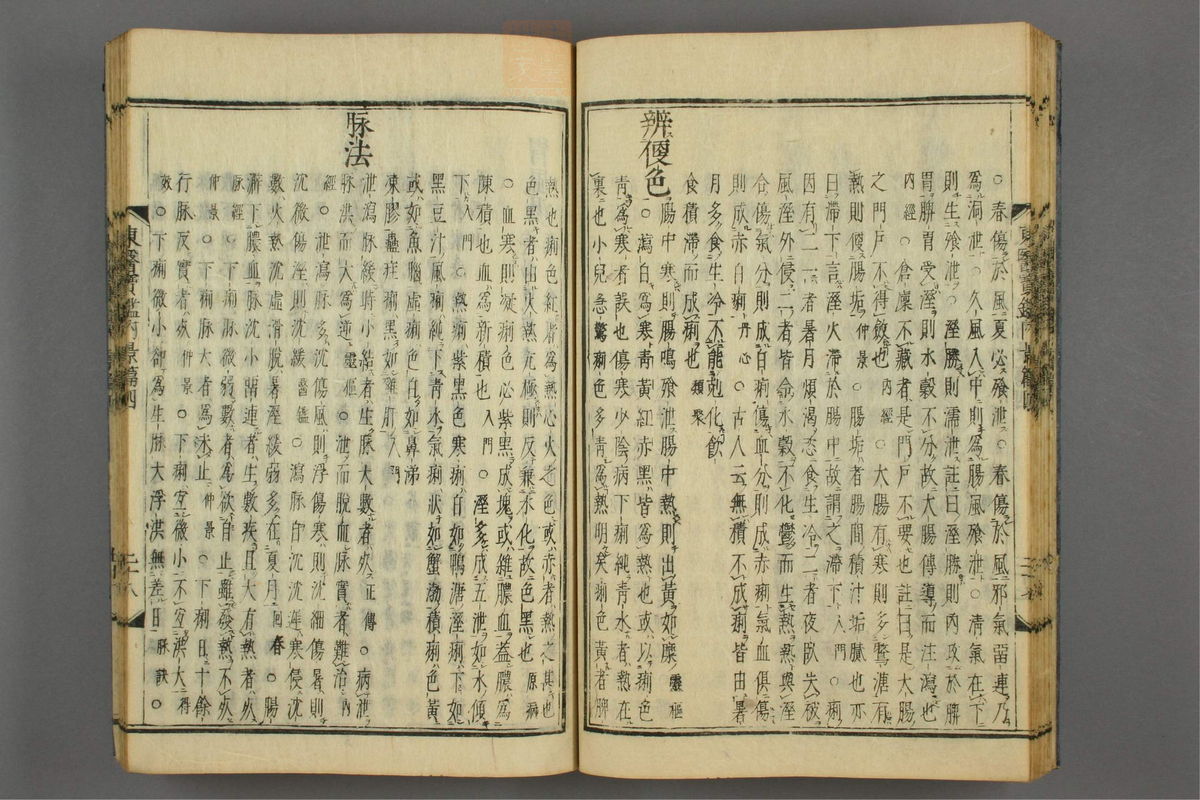 ○春傷於風夏必飱泄○春傷於風邪氣留連乃
爲洞泄○久風入中則爲腸風飱泄○清氣在下
則生飱泄○溼勝則濡泄註曰溼勝則內攻於脾
胃脾胃受溼則水穀不分故大腸傳導而注瀉也
內經○倉廩不藏者是門戶不要也註曰是大腸
之門戶不得斂也內經○大腸有寒則多鶩溏有
熱則便腸垢仲景○腸垢者腸間積汁垢膩也亦
曰滯下言溼火滯於腸中故謂之滯下入門○痢
因有二一者暑月煩渴恣食生冷二者夜臥失
風溼外侵二者皆令水穀不化鬱而生熱熱與溼
合傷氣分則成白痢傷血分則成赤痢氣血俱傷
則成赤白痢丹心○古人云無積不成痢皆由暑
月多食生冷不能剋化飮
食積滯而成痢也類聚
辨便色
腸中寒則腸鳴飱泄腸中熱則出黃如糜靈樞
○瀉白爲寒靑黃紅赤黑皆爲熱也或以痢色
靑爲寒者誤也傷寒少陰病下痢純靑水者熱在
裏也小兒急驚痢色多靑爲熱明矣痢色黃者脾
熱也痢色紅者心火之色或赤者熱之甚也
色黑者由火熱亢極則反兼水化故色黑也原病
○血寒則凝痢色必紫黑成塊或雜膿血蓋膿爲
陳積也血爲新積也入門○溼多成五泄如水傾
下入門○熱痢紫黑色寒痢白如鴨溏溼痢下如
黑豆汁風痢純下靑水氣痢狀如蟹渤積痢色黃
或如魚腦虛痢色白如鼻涕
凍膠蠱疰痢黑如雞肝入門
脉法
泄瀉脉緩時小結者生脉大數者死正傳○病泄
脉洪而大爲逆靈樞○泄而脫血脉實者難治內
經○泄瀉脉多沈傷風則浮傷寒則沈細傷暑則
沈微傷溼則沈緩醫鑑○瀉脉自沈沈遲寒侵沈
數火熱沈虛滑脫暑溼緩弱多在夏月回春○腸
澼下膿血脉沈小留連者生數疾且大有熱者死
脉經○下痢脉微弱數者爲欲自止雖發熱不死
仲景○下痢脉大者爲未止仲景○下痢日十餘
行脉反實者死仲景○下痢宜微小不宜洪大得
效○下痢微小卻爲生脉大浮洪無差日脉訣○
東醫寶鑑內景篇四
二十八